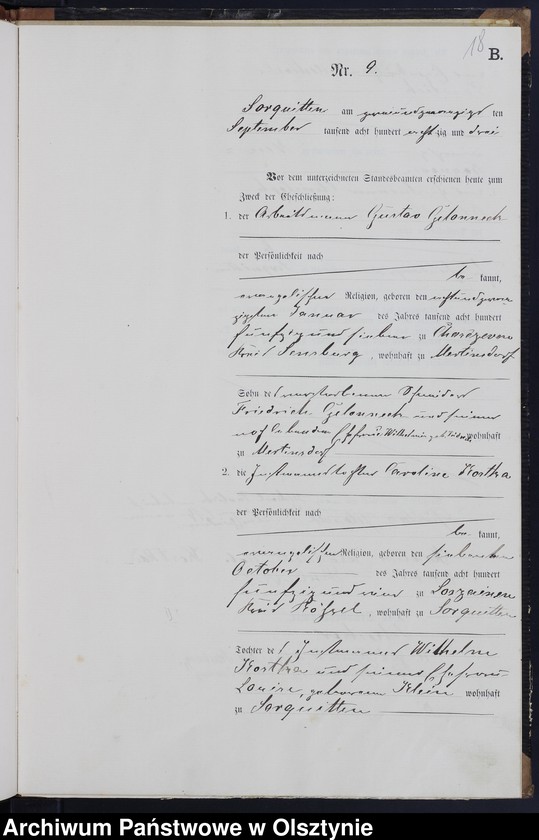 18
B.
Nr. 9.
Sorquitten am zweiundzwanzigsten
September tausend acht hundert achtzig und drei
Vor dem unterzeichneten Standesbeamten erschienen heute zum
Zweck der Eheschließung:
1. der Arbeitsmann Gustav
der Persönlichkeit nach
be kannt,
evangelischer Religion, geboren den achtundzwan
zigsten Januar des Jahres tausend acht hundert
fünfzig und sieben zu
Kreis Sensburg, wohnhaft zu Mertinsdorf
Sohn des verstorbenen Schneiders
Friedrich und seiner
noch lebenden Ehefrau Wilhelmine wohnhaft
zu Mertinsdorf
2. die Instmannstochter Caroline Kostka
der Persönlichkeit nach
be kannt,
evangelischer Religion, geboren den siebenten
October des Jahres tausend acht hundert
fünfzig und vier zu
Kreis Rößel, wohnhaft zu Sorquitten
Tochter des Instmanns Wilhelm
Kostka und seiner Ehefrau
Louise, geborenen Klein wohnhaft
zu Sorquitten
Archiwum Państwowe w Olsztynie